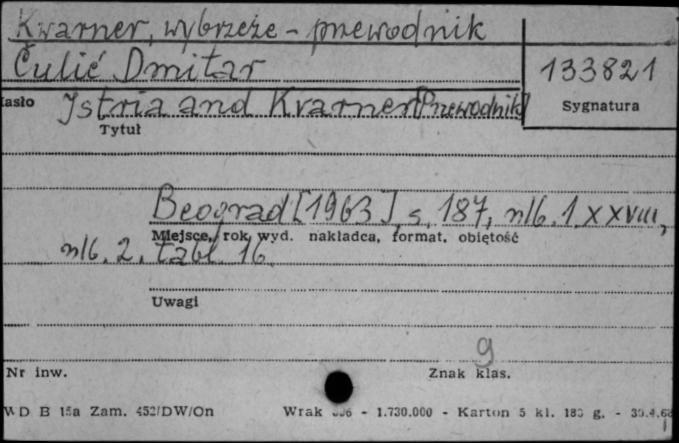 Kwarner, wybrzeże - przewodnik
Čulić Dmitar
133821
asło
Istria and Kvarner [Przewodnik]
Sygnatura
Tytuł
Beograd [1963], s. 187, nlb. 1, XXVIII,
Miejsce, rok wyd. nakładca, format, objętość
nlb. 2. tabl. 16
Uwagi
9
Nr inw.
Znak klas.
WD B 15a Zam. 452/DW/On Wrak - 1.730.000 - Karton 5 kl. 180 g. -